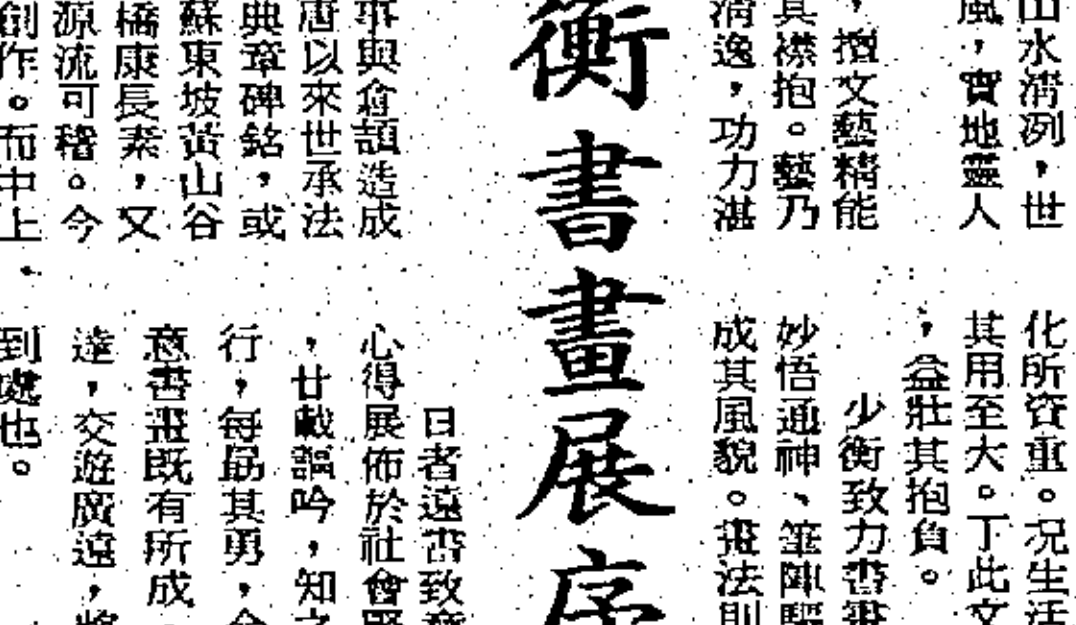 山水清冽，世
風，實地靈人
，擅文藝精能
其襟抱。藝乃
清逸，功力湛
化所資重。况生活
其用至大。丁此文
，益壯其抱負。
少衡致力書畫
妙悟通神、筆陣驅
成其風貌。畫法則
衡書畫展序
事與倉頡造成
唐以來世承法
典章碑銘，或
蘇東坡黃山谷
橋康長素，又
源流可稽。今
創作。而中上
日者遠書致意
心得展佈於社會
，廿載謳吟，知之
行，每勗其勇，今
意書畫既有所成
達，交遊廣遠，將
到處也。